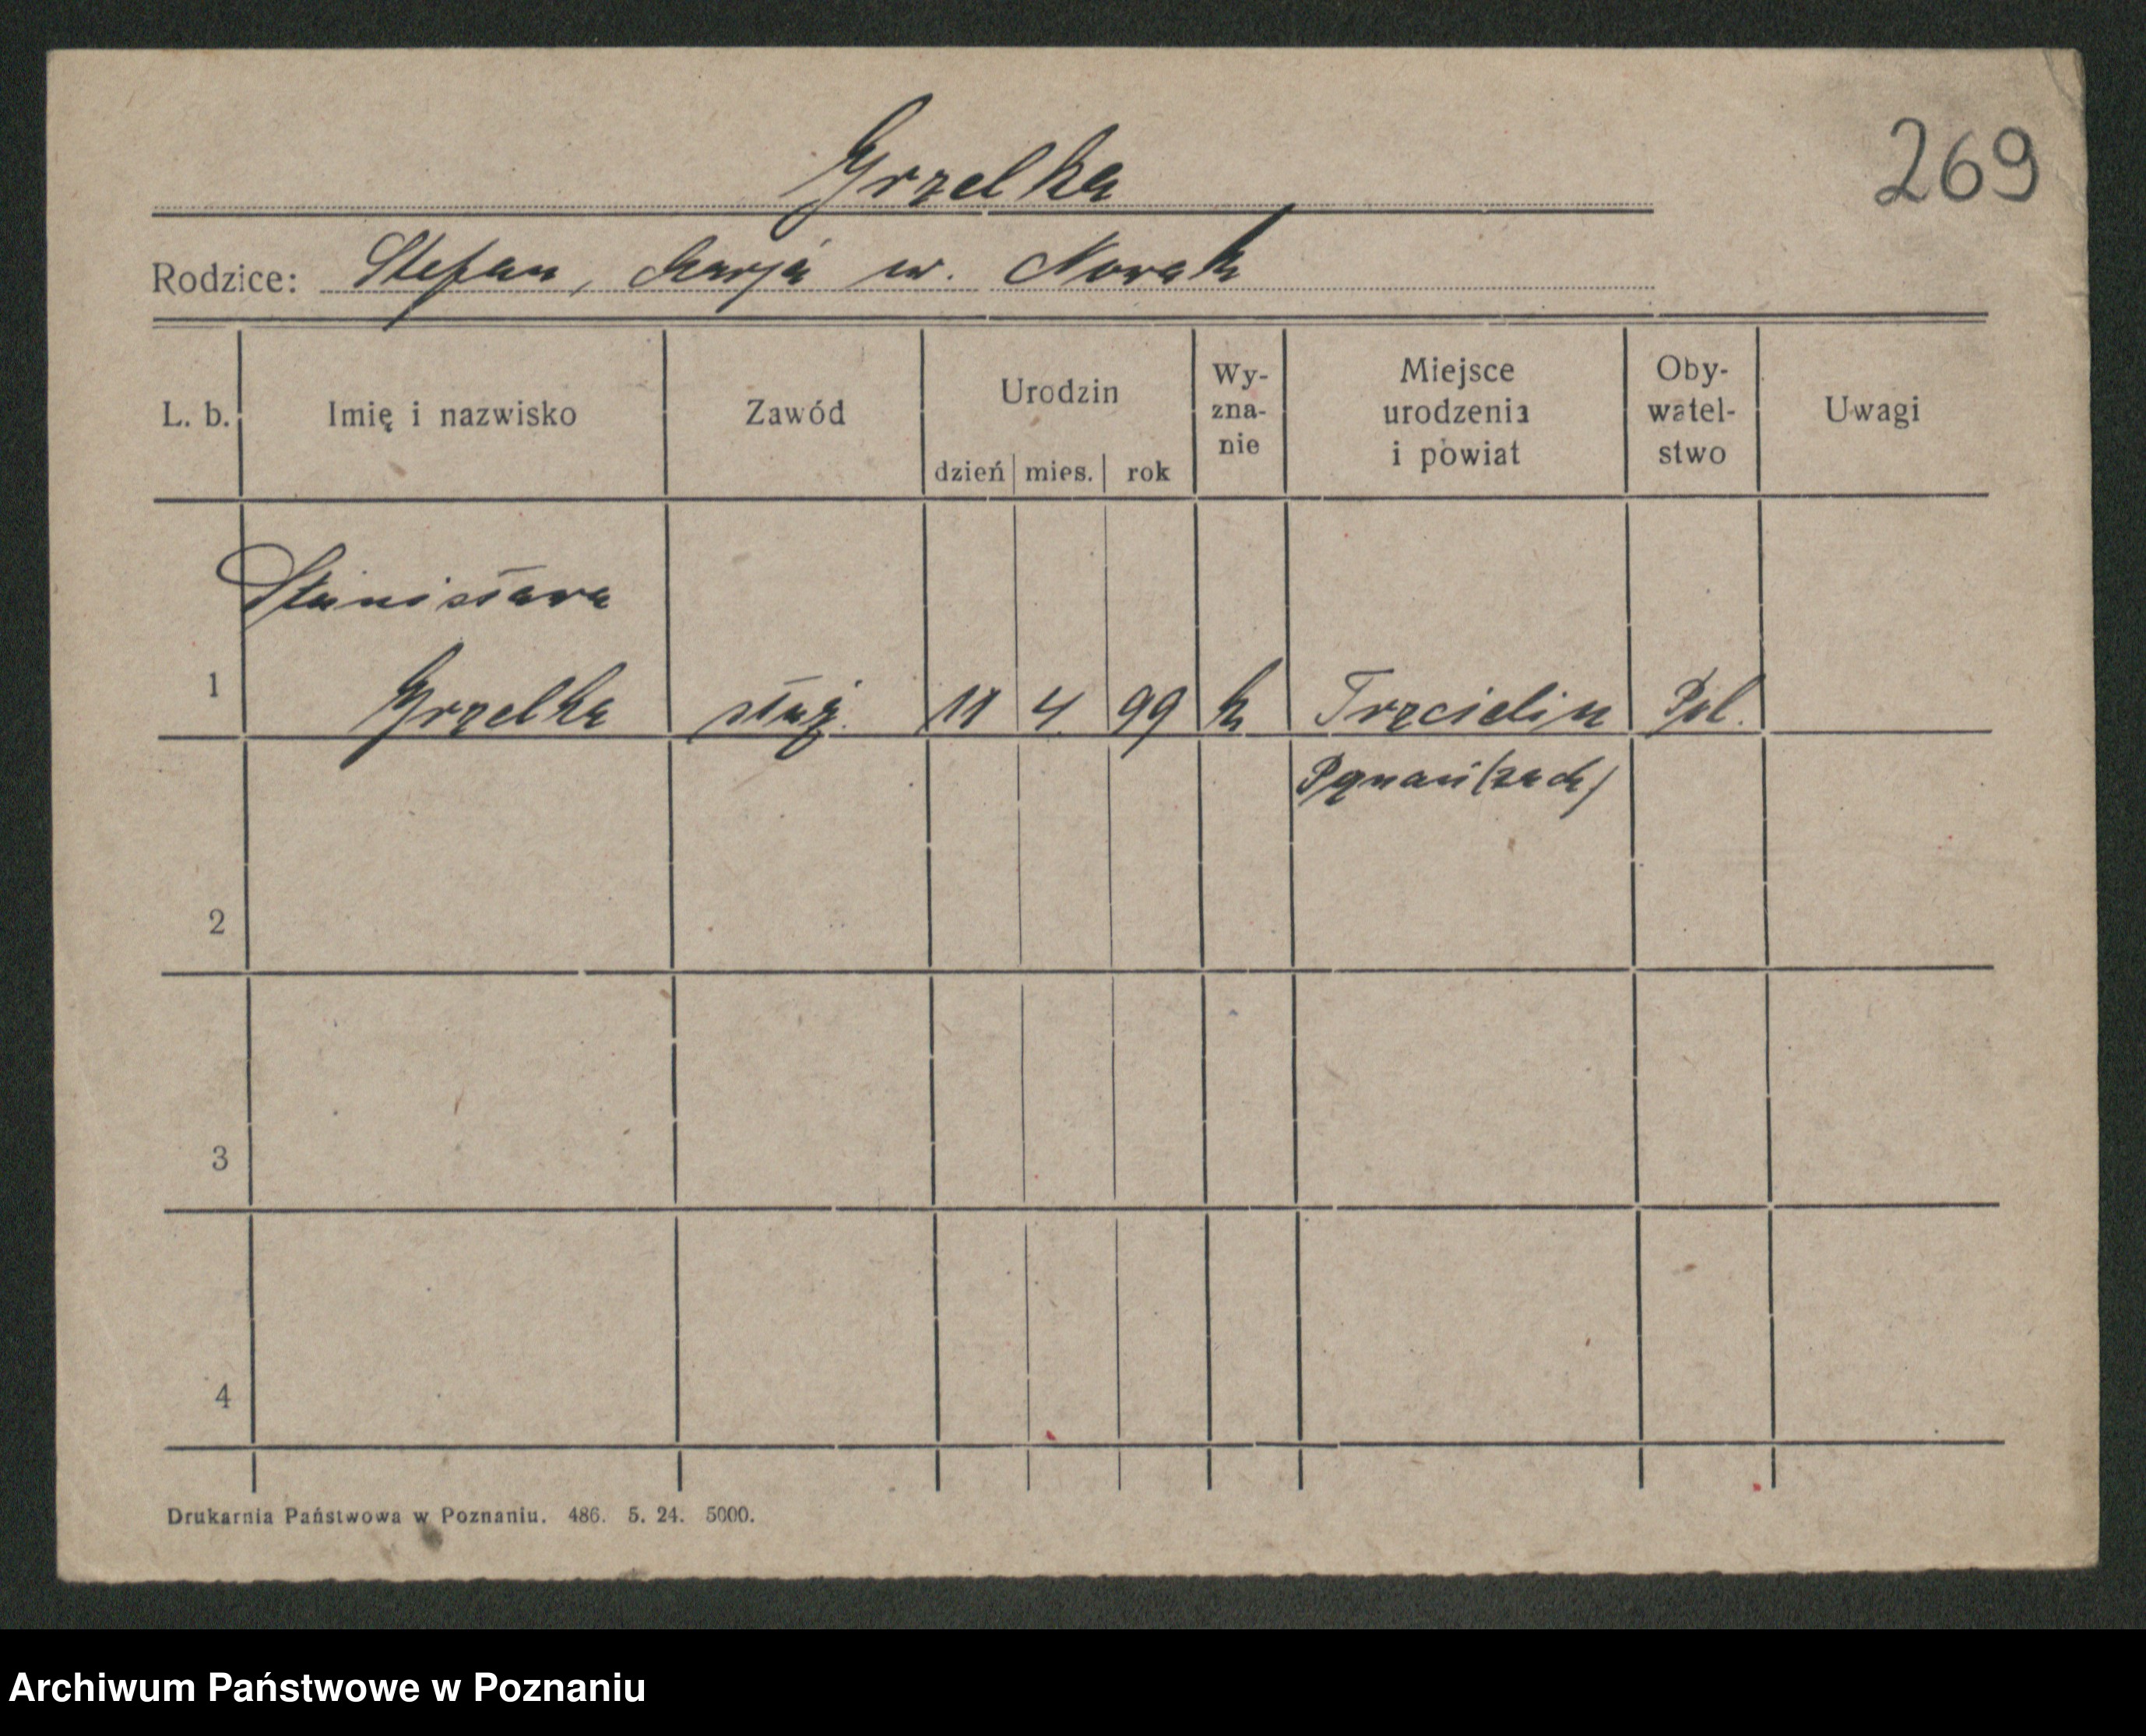 Grzelka
269
Rodzice: Stefan, Marja w. Nowak
L. b. Imię i nazwisko Zawód Urodzin dzień mies. rok Wy-zna-nie Miejsce urodzenia i powiat Oby-watel-stwo Uwagi
Stanisława
1 Grzelka służ. 11 4 99 k Trzcielin Pol.
Poznań (zach)
2
3
4
Drukarnia Państwowa w Poznaniu. 486. 5. 24. 5000.
Archiwum Państwowe w Poznaniu